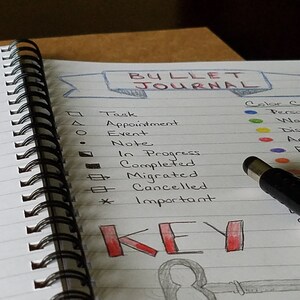 BULLET
JOURNAL
Task
Appointment
Event
Note
In Progress
Completed
Migrated
Cancelled
Important
Color
KEY